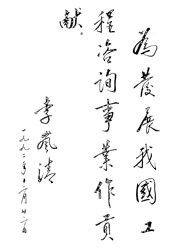 為發展我國工
程咨詢事業作貢
獻。
李嵐清
一九九二年十月廿日